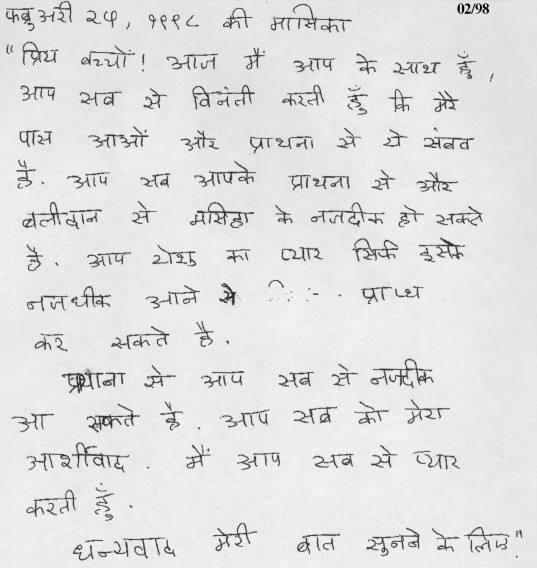 02/98
फब्रुअरी २५, १९९८ की मासिका
"प्रिय बच्चों! आज मैं आप के साथ हूँ,
आप सब से विनंती करती हूँ कि मेरे
पास आओं और प्राथना से ये संबव
है. आप सब आपके प्राथना से और
बलीदान से मसिहा के नजदीक हो सकते
है. आप येशु का प्यार सिर्फ इसके
नजधीक आने से प्राप्थ
कर सकते है.
प्राथाना से आप सब से नजदीक
आ सकते है. आप सब को मेरा
आर्शीवाद. मैं आप सब से प्यार
करती हूँ.
धन्यवाद मेरी बात सुनने के लिए."